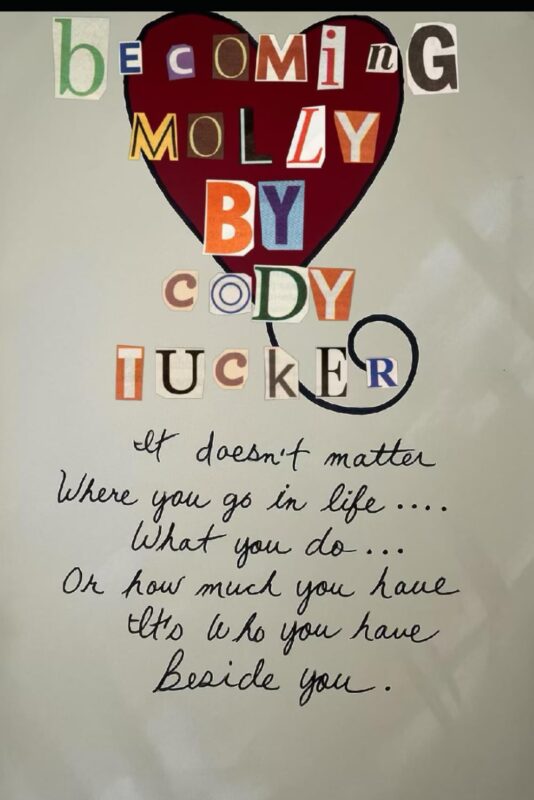 becoming
MOLLY
BY
CODY
TUCkER
It doesn't matter
Where you go in life ....
What you do ...
Or how much you have
It's Who you have
Beside you.